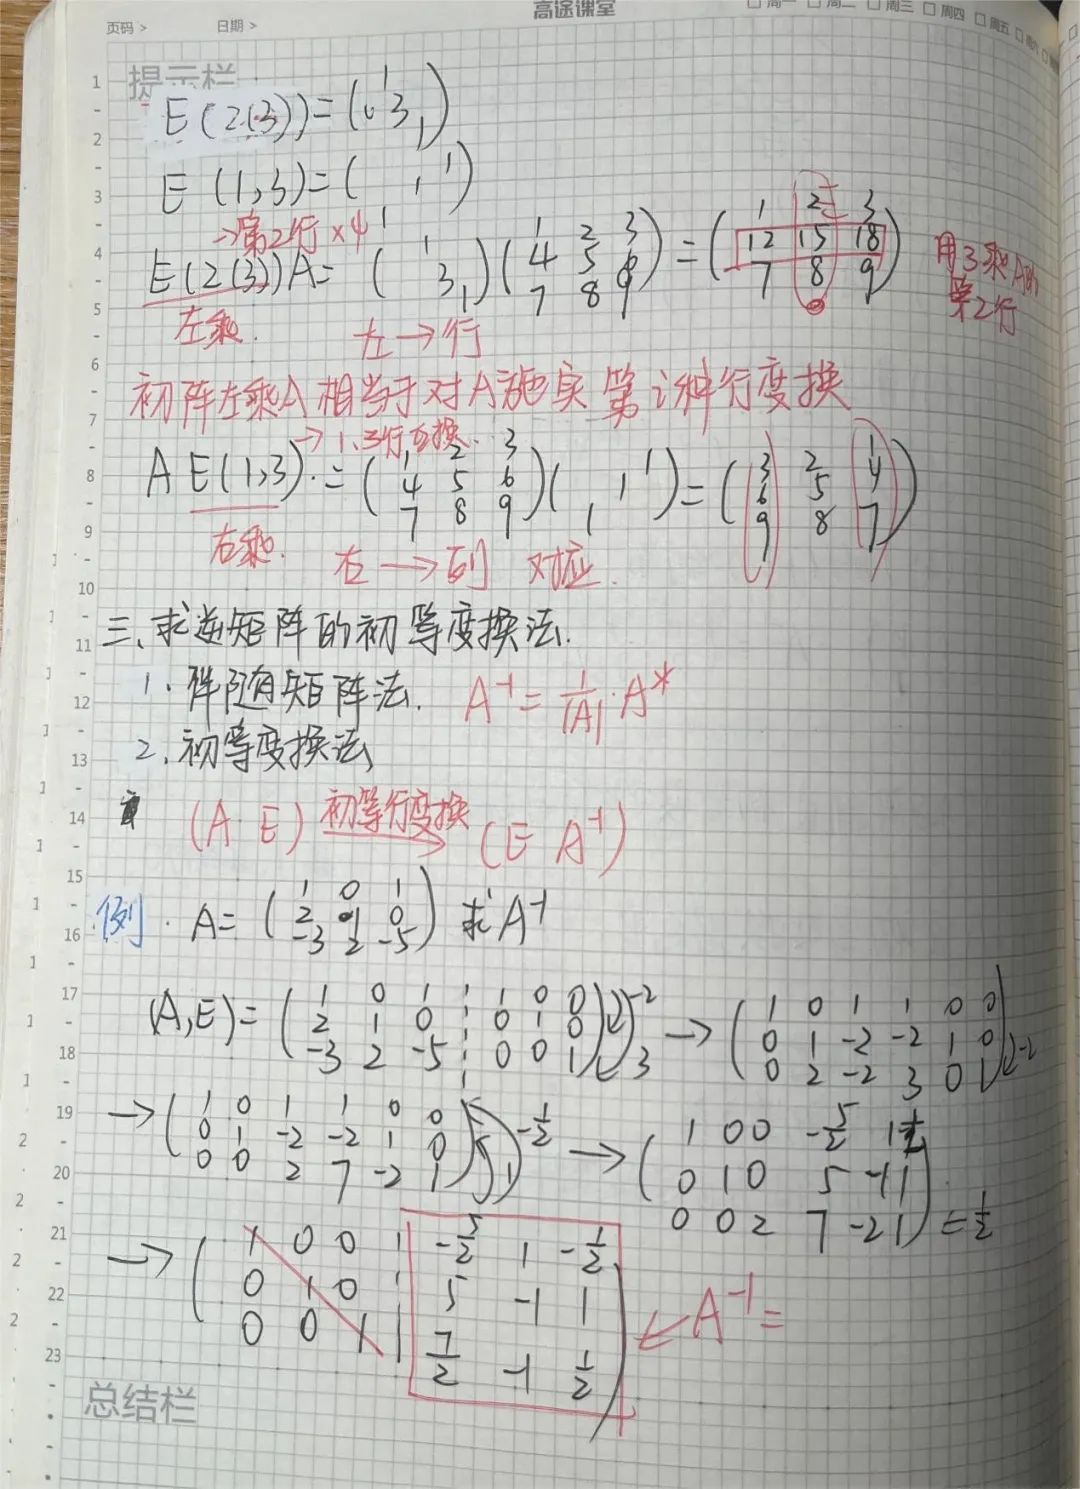 高途课堂
页码 > 日期 > 周一 周二 周三 周四 周五
提示栏
E(2(3))=(1 3 1)
E(1,3)=( 1 1 1 )
→第2行×4
E(2(3))A=(1 3 1)(1 2 3 4 5 6 7 8 9)=(1 2 3 12 15 18 7 8 9)
用3乘A的第2行
左乘. 左→行
初阵左乘A相当于对A施实第i种行变换
→1.3行互换
A E(1,3)=(1 2 3 4 5 6 7 8 9)( 1 1 1 )=(3 2 1 6 5 4 9 8 7)
右乘. 右→列 对应.
三、求逆矩阵的初等变换法.
1.伴随矩阵法. A⁻¹=1/|A|·A*
2.初等变换法
(A E) 初等行变换→ (E A⁻¹)
例. A=(1 0 1 2 1 0 -3 2 -5) 求A⁻¹
(A,E)=(1 0 1 1 0 0 2 1 0 0 1 0 -3 2 -5 0 0 1) -2 3 →(1 0 1 1 0 0 0 1 -2 -2 1 0 0 2 -2 3 0 1) -2
→(1 0 1 1 0 0 0 1 -2 -2 1 0 0 0 2 7 -2 1) 1 -1/2 →(1 0 0 -5/2 1 -1/2 0 1 0 5 -1 1 0 0 2 7 -2 1) 1/2
→(1 0 0 -5/2 1 -1/2 0 1 0 5 -1 1 0 0 1 7/2 -1 1/2) ←A⁻¹=
总结栏